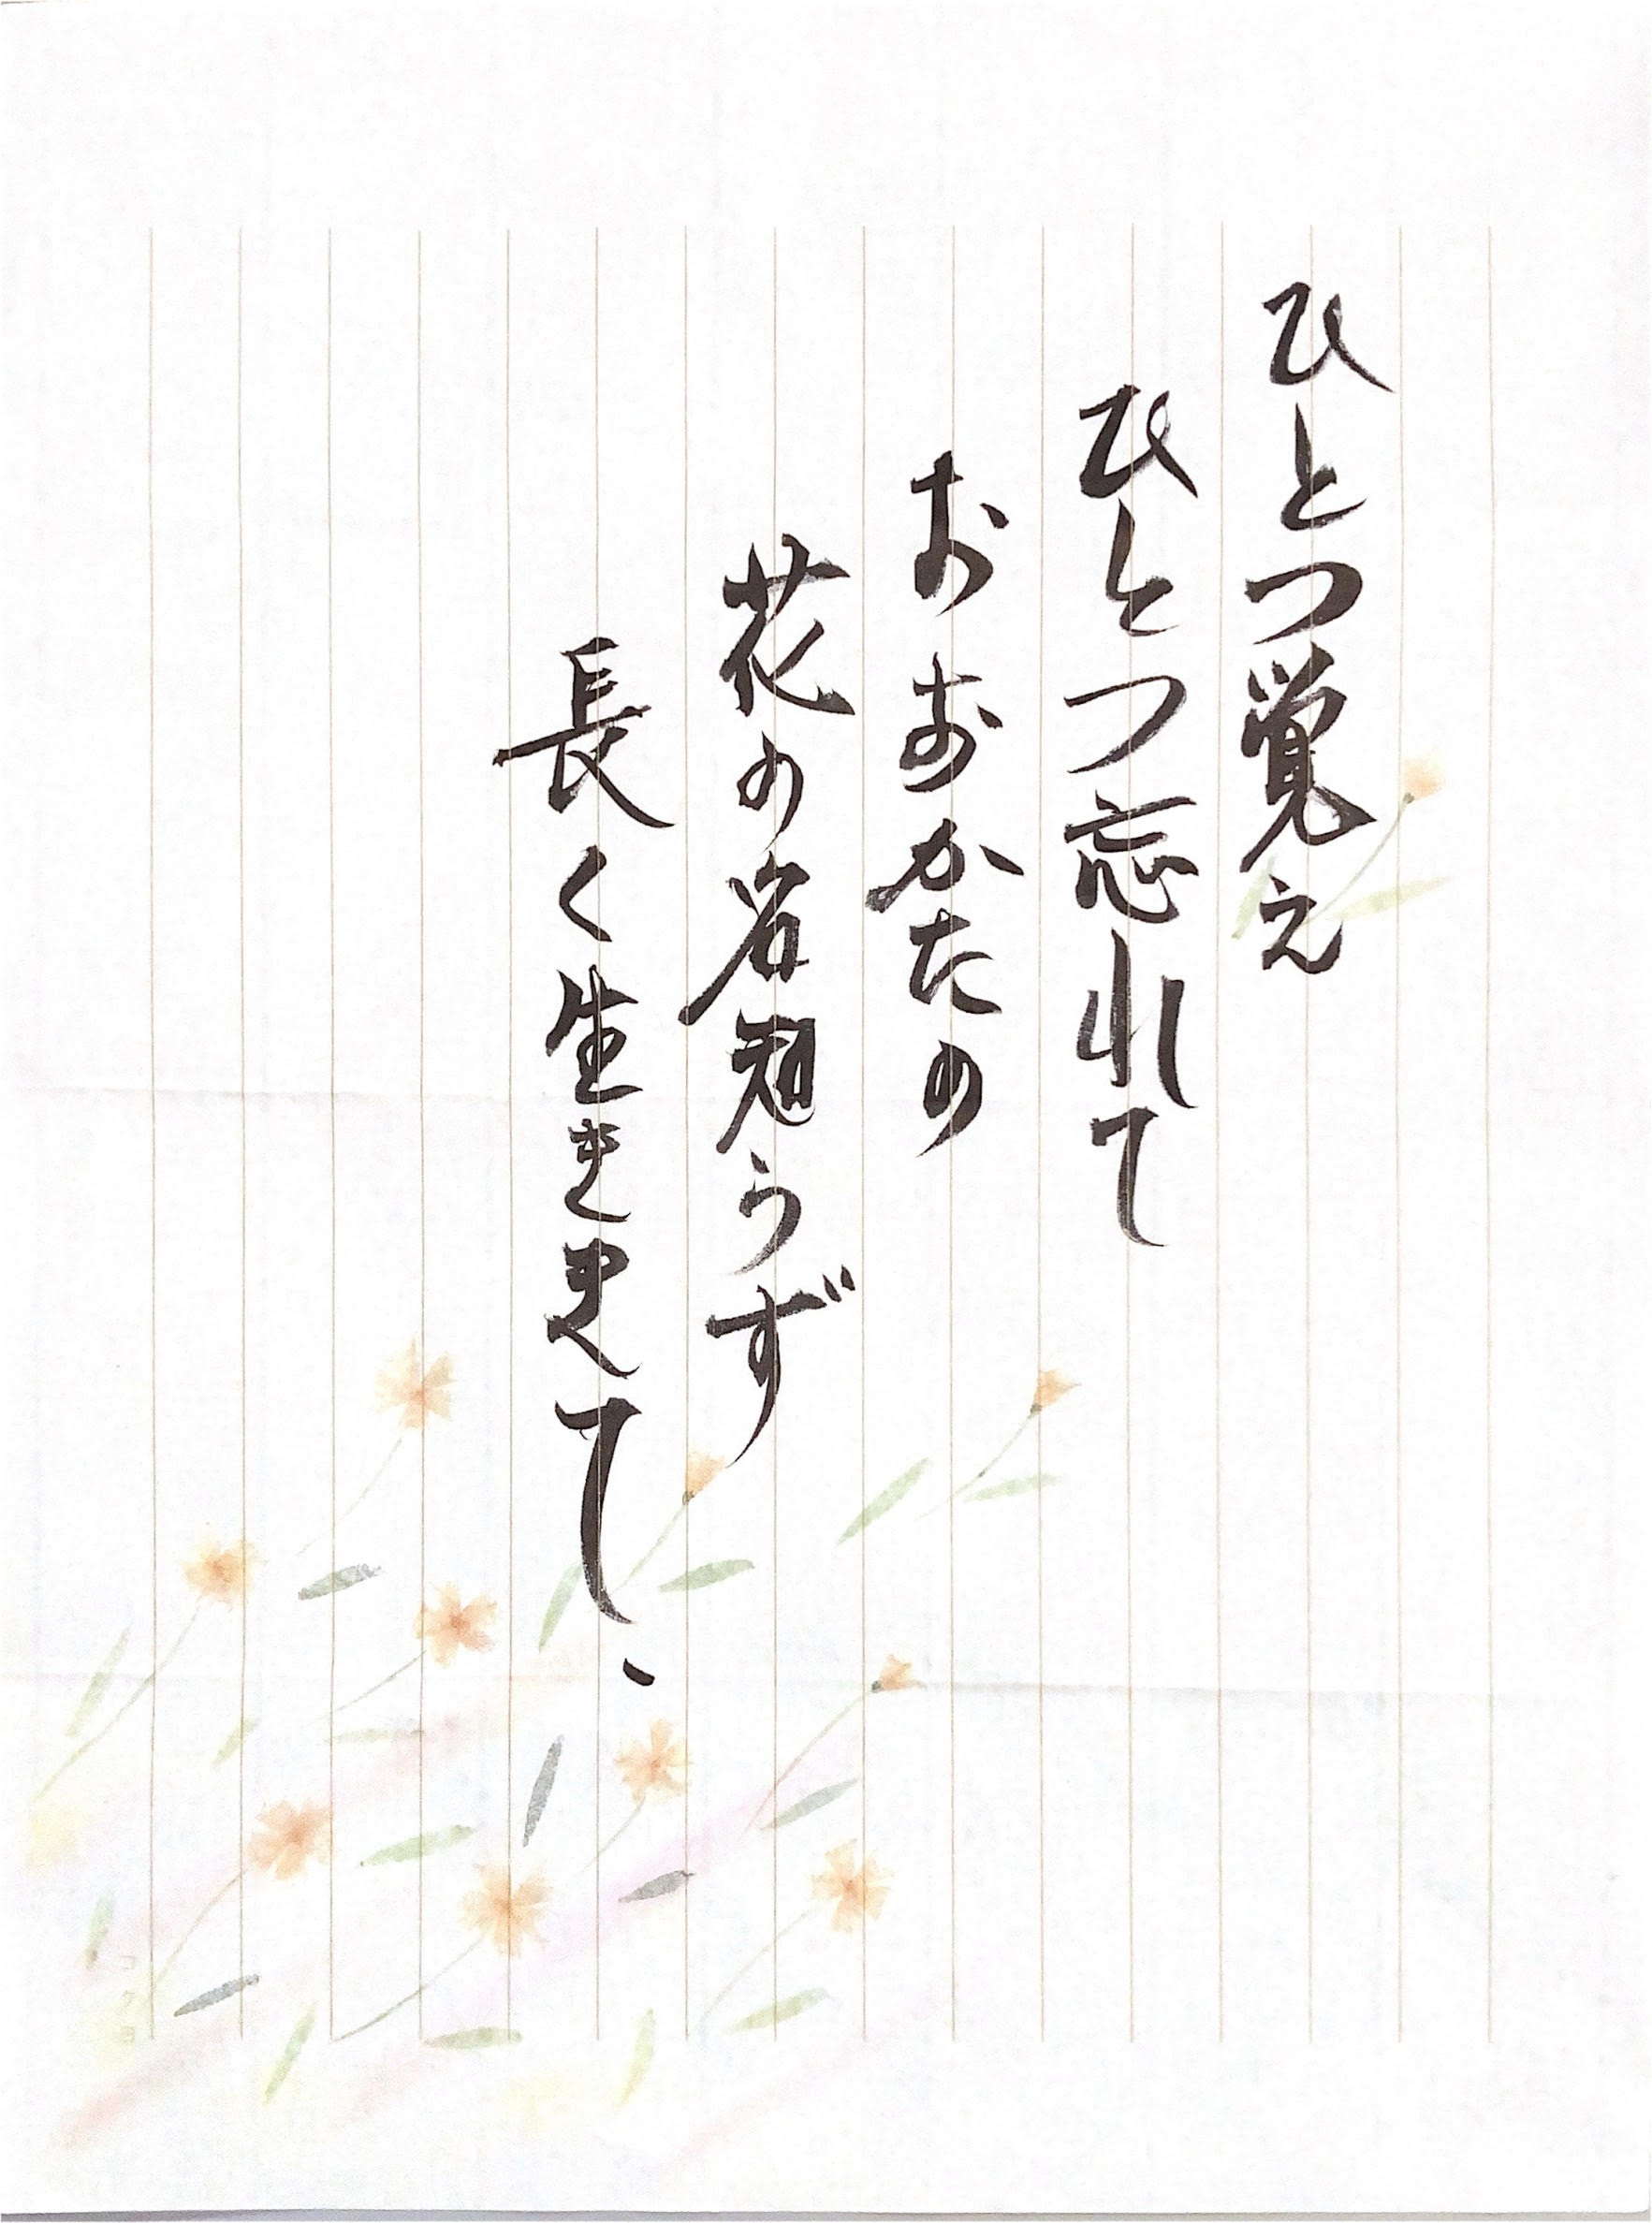 ひとつ覚え
ひとつ忘れて
おおかたの
花の名知らず
長く生ききて、